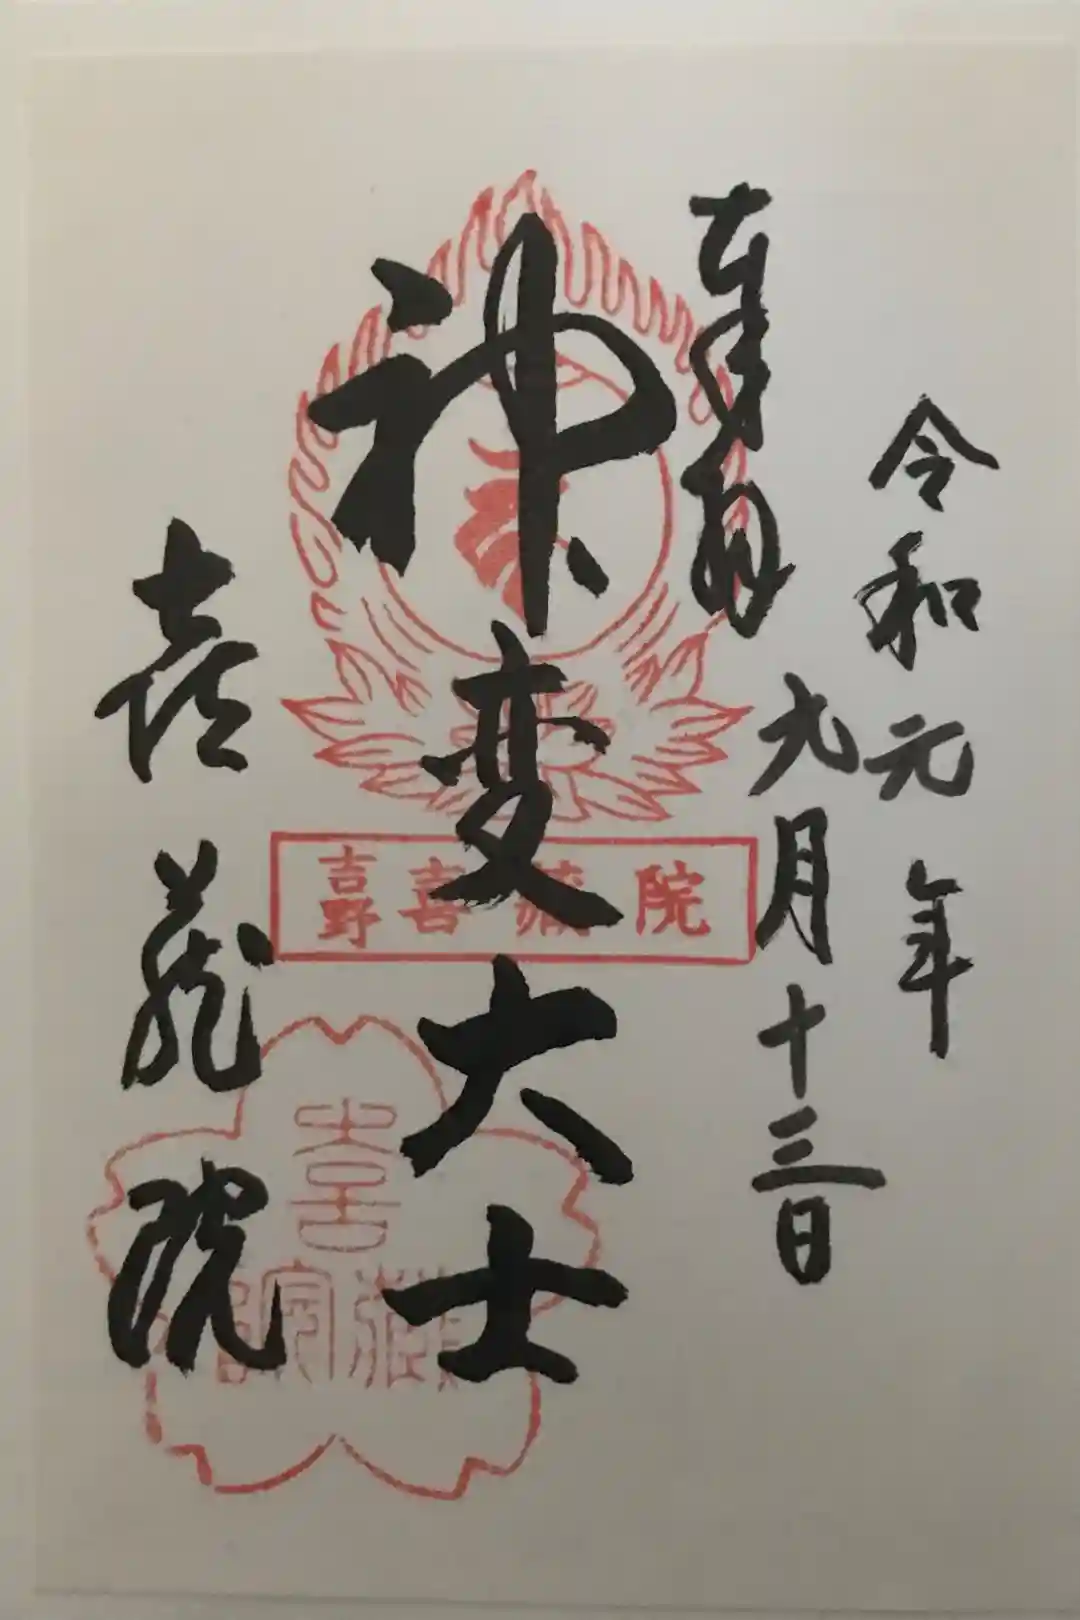 令和元年
九月十三日
奉拝
神変大士
喜蔵院
吉野喜蔵院
喜蔵院